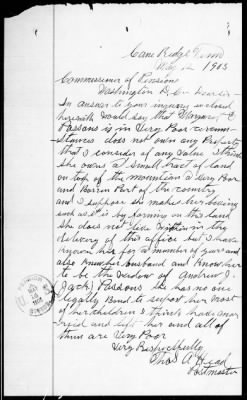 Cane Ridge Tenn
1903
Commissioner of Pension
Washington D.C.
In answer to your inquiry inclosed
herewith would say that Margaret E
Parsons is in Very Poor circum
stances does not own any Property
that I consider of any value
She owns a small tract of land
on top of the mountain a Very Poor
and Barren Part of the country
and I suppose she makes her living
such as it is by farming on this land
She does not live within the
delivery of this office but I have
known her for a number of years and
also knew her husband and know her
to be the widow of Andrew J.
(Jack) Parsons she has no one
legally bound to support her most
of her children I think have mar
ried and left her and all of
them are Very Poor
Very Respectfully
Thos A Head
Postmaster